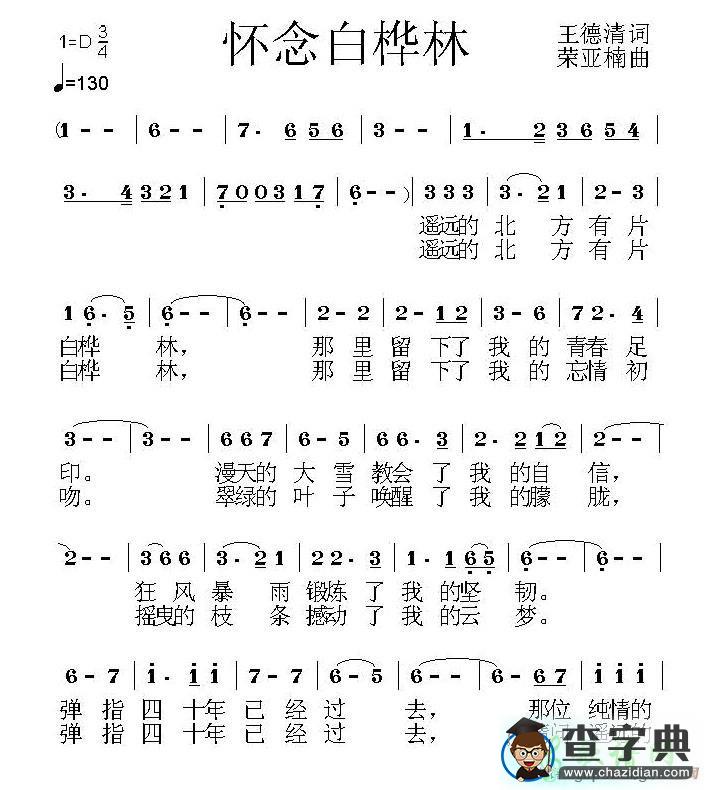 1=D 3/4
怀念白桦林
王德清词
荣亚楠曲
♩=130
(1 - - | 6 - - | 7· 6 5 6 | 3 - - | 1· 2 3 6 5 4 |
3· 4 3 2 1 | 7 0 0 3 1 7 | 6 - - ) | 3 3 3 | 3· 2 1 | 2 - 3 |
遥远的 北 方 有 片
遥远的 北 方 有 片
1 6· 5 | 6 - - | 6 - - | 2 - 2 | 2 - 1 2 | 3 - 6 | 7 2· 4 |
白桦 林, 那 里 留 下了 我 的 青春 足
白桦 林, 那 里 留 下了 我 的 忘情 初
3 - - | 3 - - | 6 6 7 | 6 - 5 | 6 6· 3 | 2· 2 | 2 1 2 | 2 - - |
印。 漫天的 大 雪 教会 了 我 的 自 信,
吻。 翠绿的 叶 子 唤醒 了 我 的 朦 胧,
2 - - | 3 6 6 | 3· 2 1 | 2 2· 3 | 1· 1 6 5 | 6 - - | 6 - - |
狂 风 暴 雨 锻炼 了 我 的 坚 韧。
摇曳的 枝 条 撼动 了 我 的 云 梦。
6 - 7 | 1· 1 1 | 7 - 7 | 6 - 5 | 6 - - | 6 - 6 7 | 1 1 1 |
弹 指 四 十年 已 经 过 去, 那位 纯情的
弹 指 四 十年 已 经 过 去,
查字典
www.chazidian.com